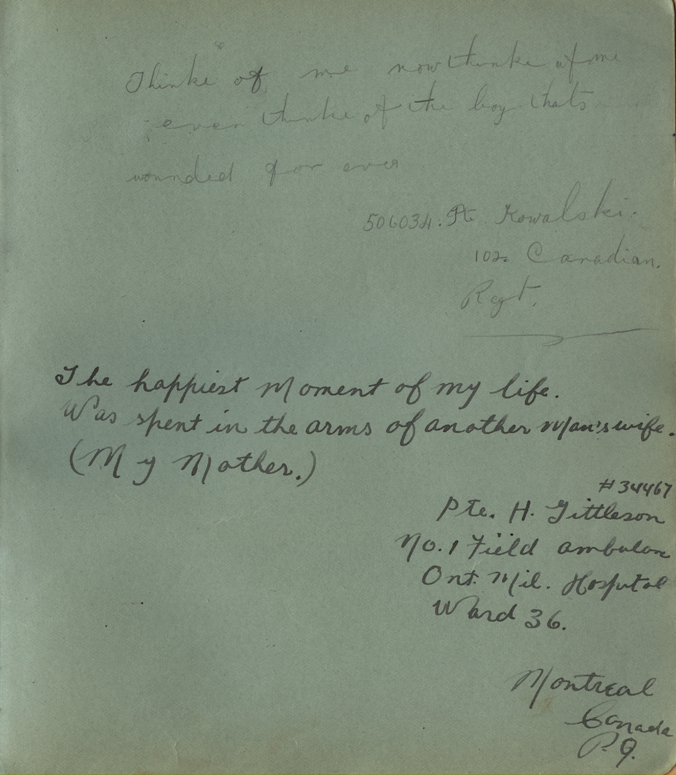 Thinke of me now thinke of me
ever thinke of the boy thats
wounded for ever
506034. Pte Kowalski.
102 Canadian.
Regt.
The happiest Moment of my life.
Was spent in the arms of another Man's wife.
(My Mother.)
#34467
Pte. H. Gittleson
No. 1 Field ambulan
Ont. Mil. Hospital
Ward 36.
Montreal
Canada
P.Q.